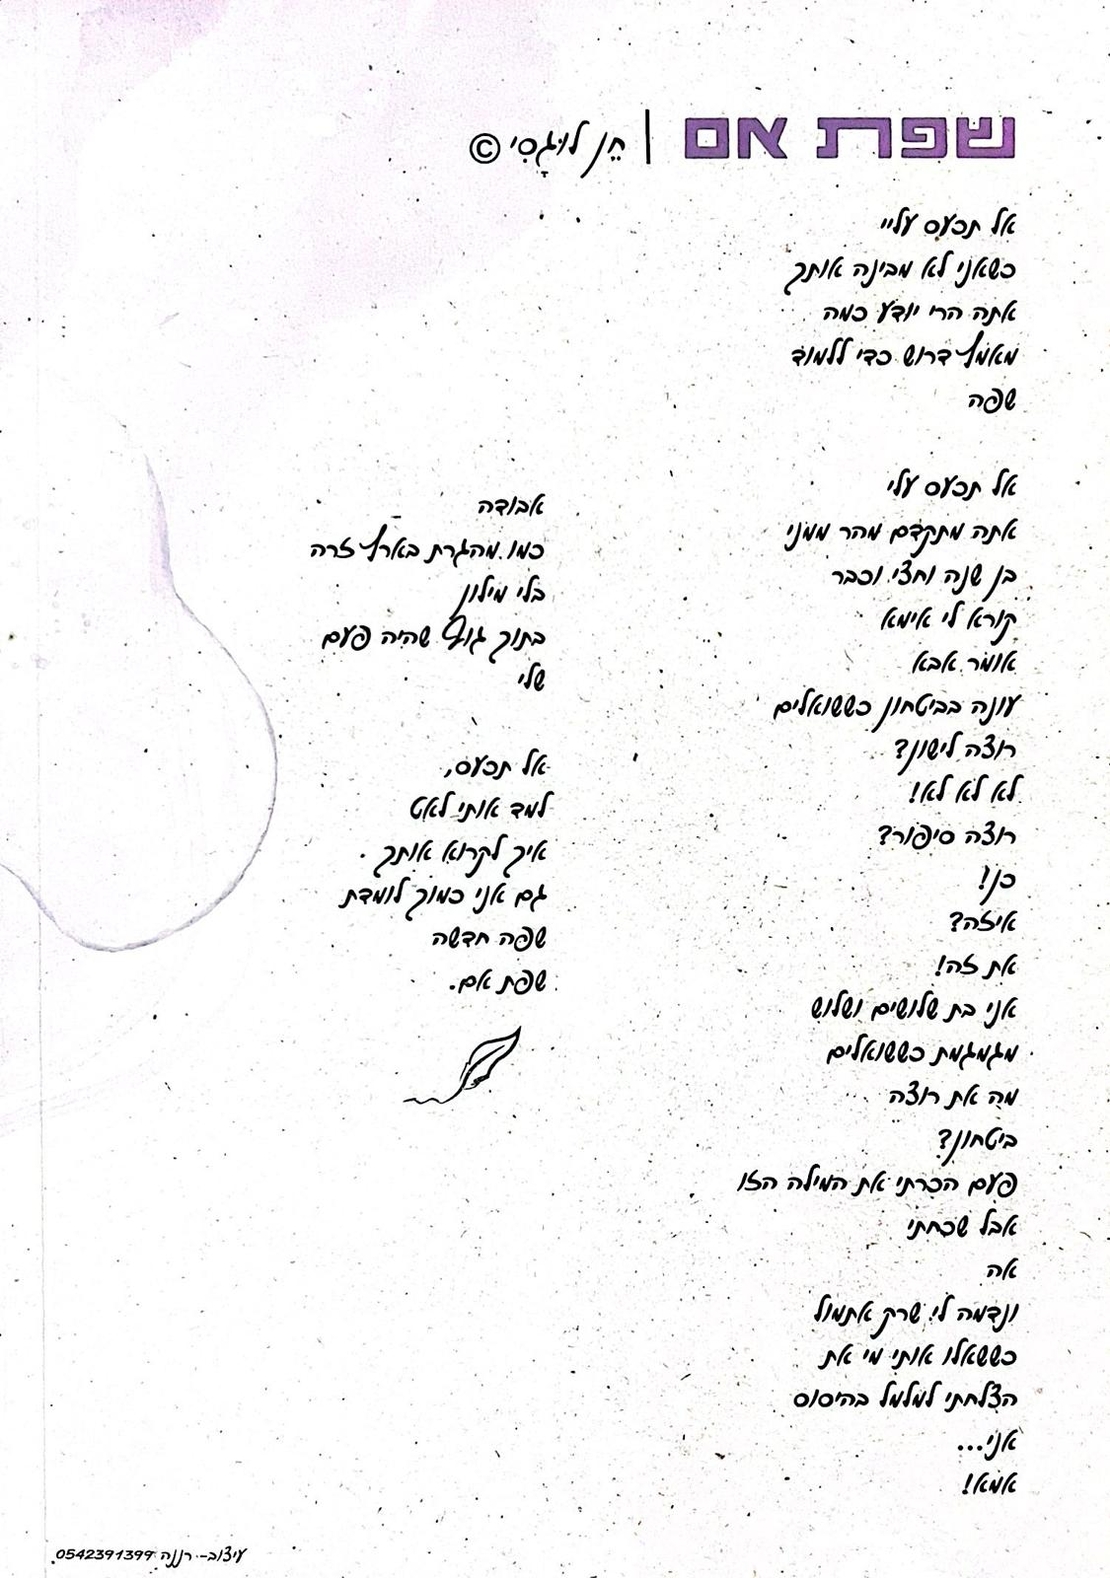 שפת אם | חֵן לוּגָסִי ©
אל תכעס עליי
כשאני לא מבינה אותך
אתה הרי יודע כמה
מאמץ דרוש כדי ללמוד
שפה
אל תכעס עלי
אתה מתקדם מהר ממני
בן שנה וחצי וכבר
קורא לי אימא
אומר אבא
עונה בביטחון כששואלים
רוצה לישון?
לא לא לא!
רוצה סיפור?
כן!
איזה?
את זה!
אני בת שלושים ושלוש
מגמגמת כששואלים
מה את רוצה
ביטחון?
פעם הכרתי את המילה הזו
אבל שכחתי
אה
ונדמה לי שרק אתמול
כששאלו אותי מי את
הצלחתי למלמל בהיסוס
אני...
אמא!
אבודה
כמו מהגרת בארץ זרה
בלי מילון
בתוך גוף שהיה פעם
שלי
אל תכעס,
למד אותי לאט
איך לקרוא אותך
גם אני כמוך לומדת
שפה חדשה
שפת אם.
עיצוב- רננה 0542391399